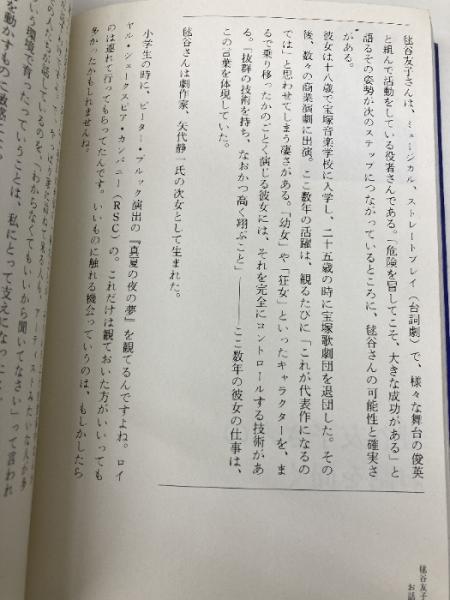 毬谷友子さんは、ミュージカル、ストレートプレイ（台詞劇）で、様々な舞台の俊英
と組んで活動をしている役者さんである。「危険を冒してこそ、大きな成功がある」と
語るその姿勢が次のステップにつながっているところに、毬谷さんの可能性と確実さ
がある。
彼女は十八歳で宝塚音楽学校に入学し、二十五歳の時に宝塚歌劇団を退団した。その
後、数々の商業演劇に出演。ここ数年の活躍は、観るたびに「これが代表作になるの
では」と思わせてしまう凄さがある。「幼女」や「狂女」といったキャラクターを、ま
るで乗り移ったかのごとく演じる彼女には、それを完全にコントロールする技術があ
る。「抜群の技術を持ち、なおかつ高く翔ぶこと」――ここ数年の彼女の仕事は、
この言葉を体現していた。
毬谷さんは劇作家、矢代静一氏の次女として生まれた。
小学生の時に、ピーター・ブルック演出の『真夏の夜の夢』を観てるんですよね。ロイ
ヤル・シェークスピア・カンパニー（RSC）の。これだけは観ておいた方がいいっても
のは連れて行ってもらってたんです。いいものに触れる機会っていうのは、もしかしたら
多かったかもしれませんね。
の人たちが話してるのを、「わからなくてもいいから聞いてなさい」って言われ
いう環境で育ったっていうことは、私にとって支えになった
を動かすものに敏感
毬谷友子
お話